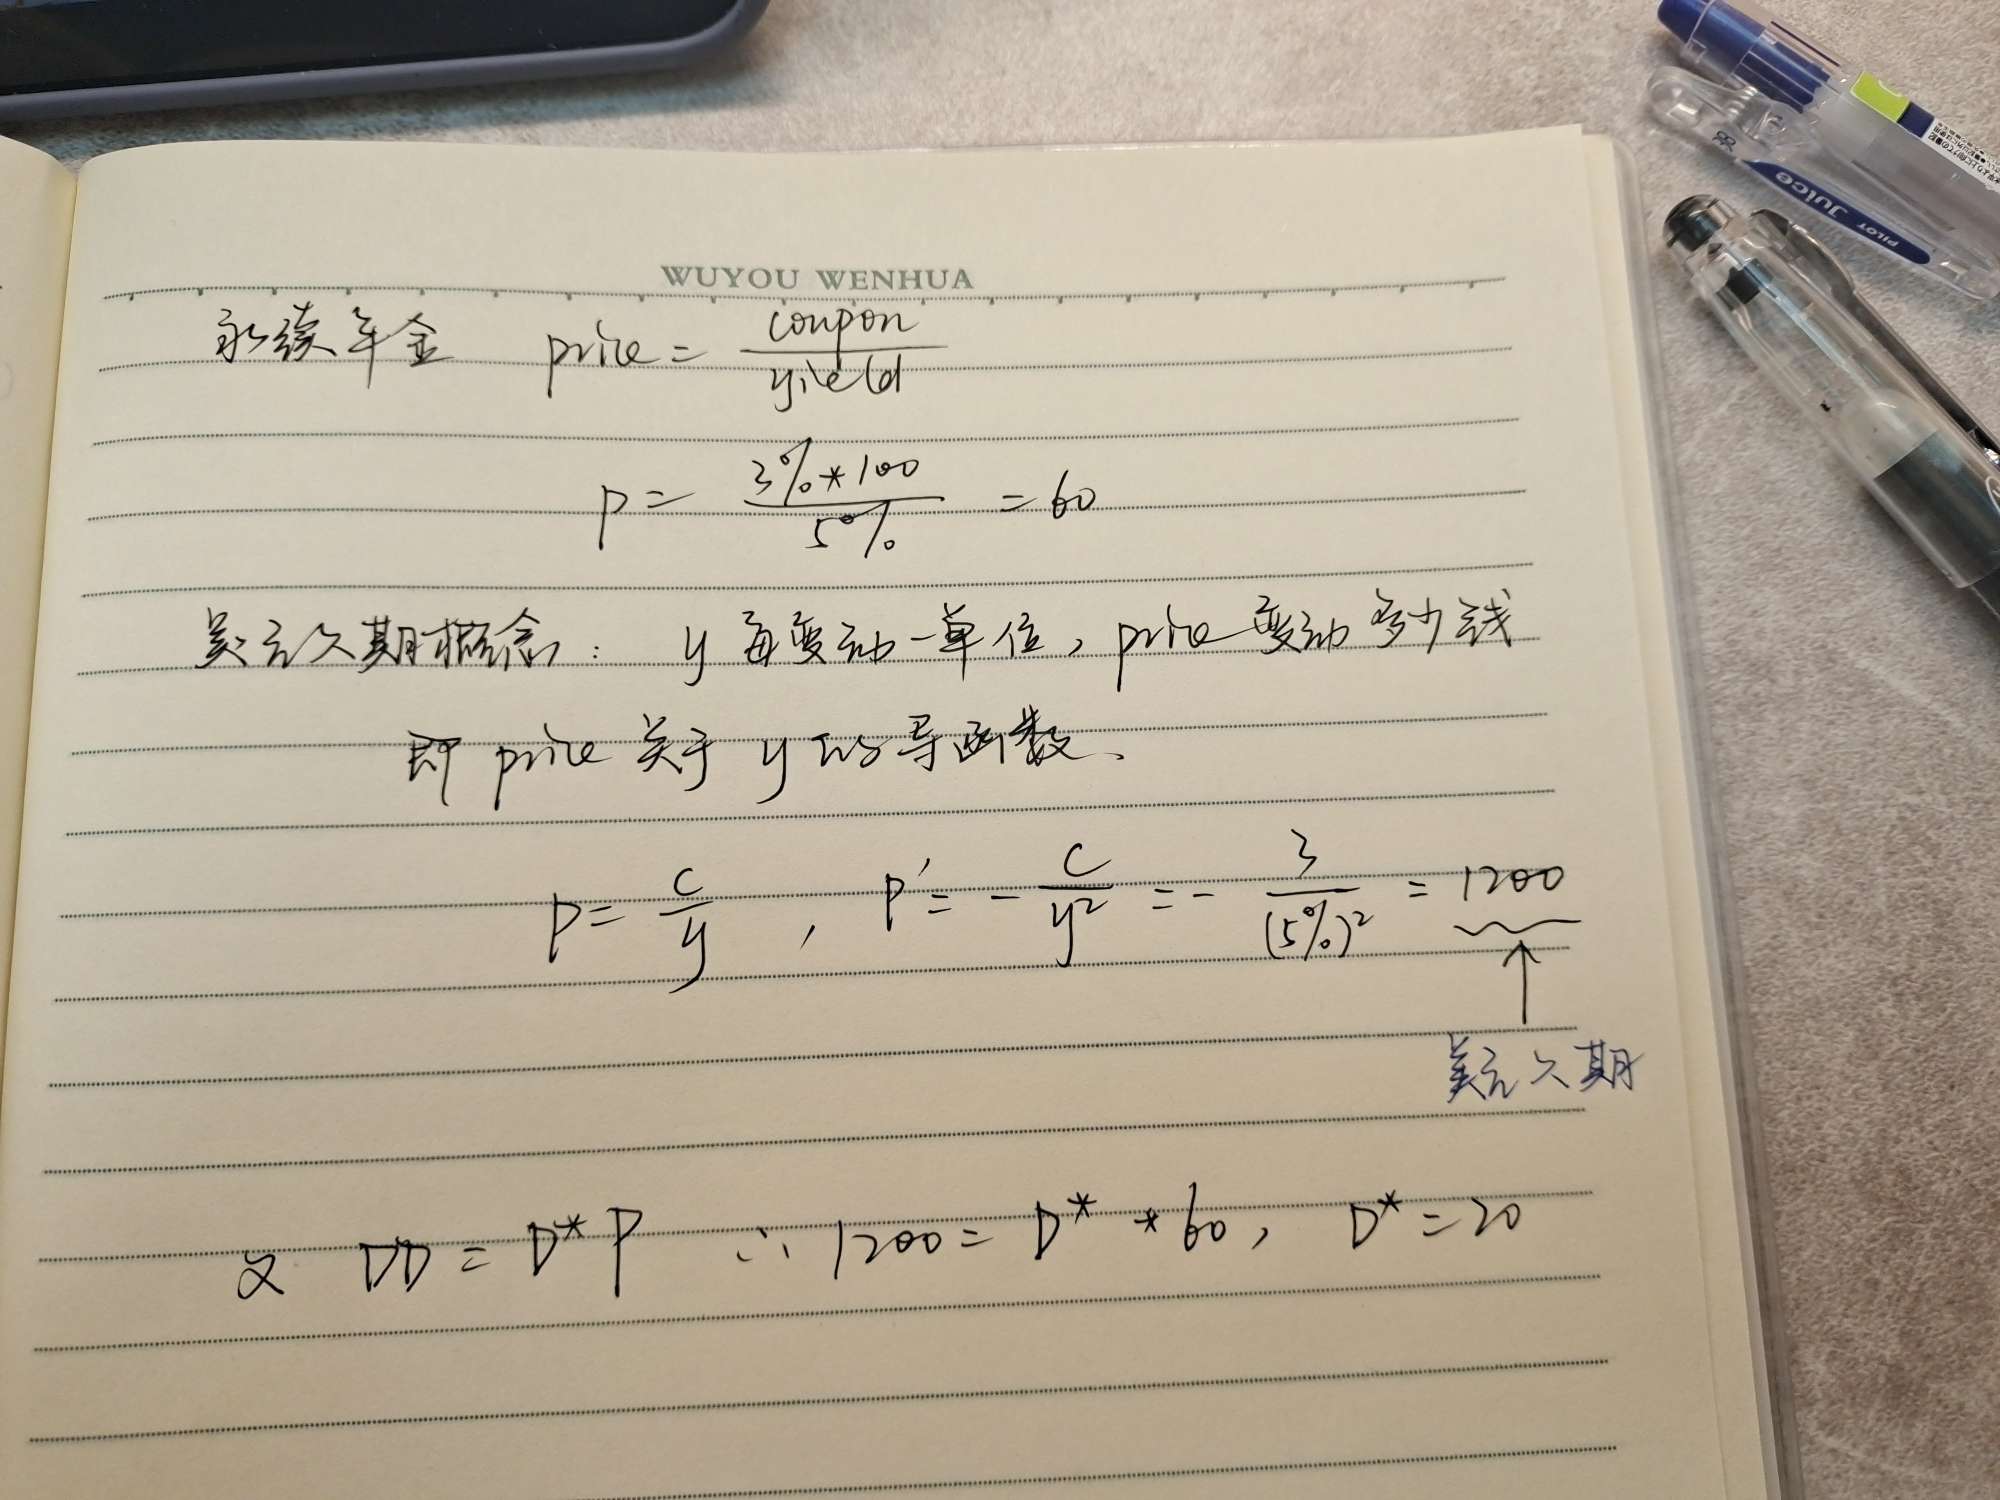 WUYOU WENHUA
永续年金 price = coupon / yield
P = 3% * 100 / 5% = 60
美元久期概念: y 每变动一单位, price 变动多少钱
即 price 关于 y 的导函数.
P = C / y , P' = - C / y² = - 3 / (5%)² = 1200
美元久期
又 DD = D* P ∴ 1200 = D* * 60, D* = 20
PILOT Juice